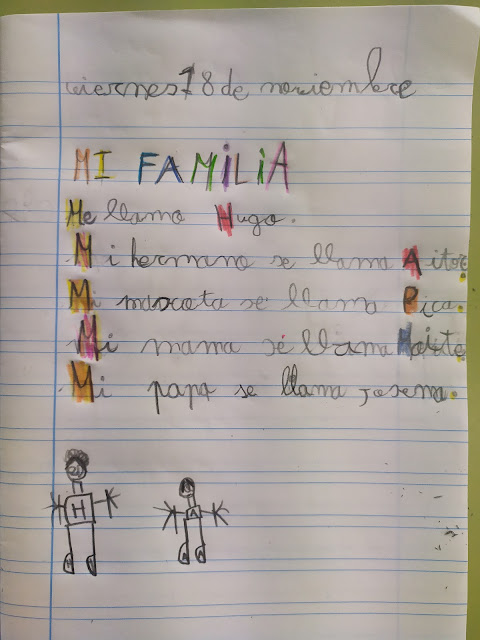 viernes 18 de noviembre
MI FAMiLiA
Me llamo Hugo.
Mi hermano se llama Aitor.
Mi mascota se llama Pica.
Mi mama sé llama Maite
Mi papa se llama josema.
H A